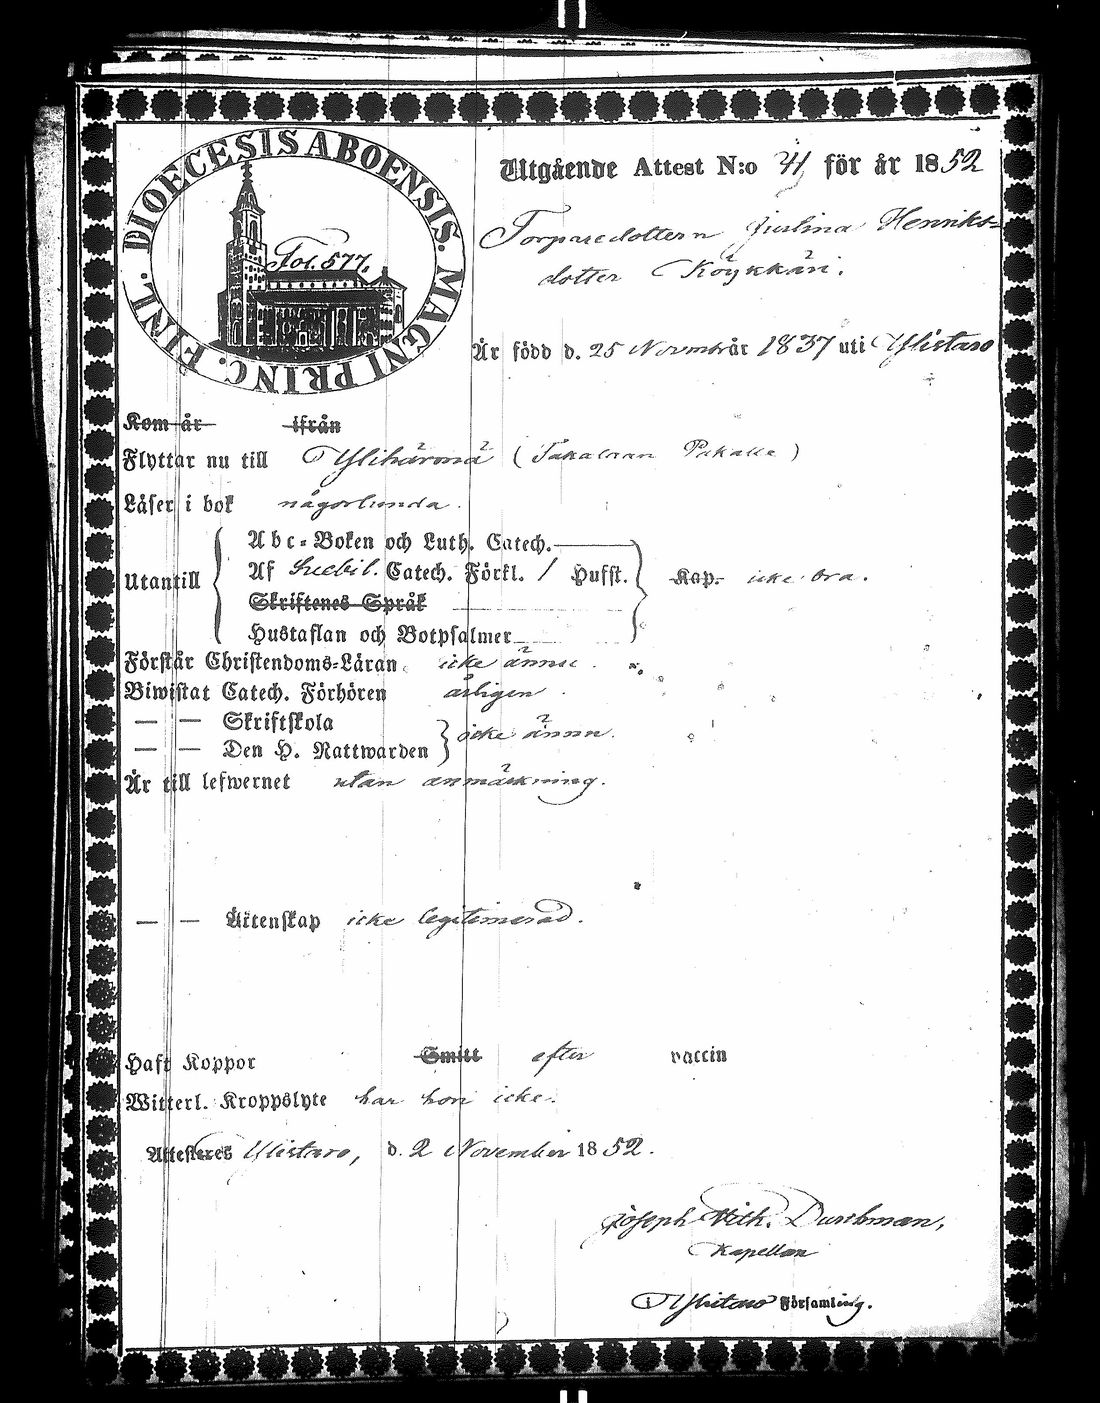 DIOECESIS ABOENSIS. MAGNI PRINC. FINL.
Fol. 577.
Utgående Attest N:o 41 för år 1852
Torparedottern Justina Henriks=
dotter Köykkäri.
Är född d. 25 Novembr år 1837 uti Ylistaro
Kom år ifrån
Flyttar nu till Ylihärmä (Pukalle)
Läser i bok någorlunda.
Utantill
Abc=Boken och Luth. Catech.
Af Svebil. Catech. Förkl. / Husst. Kap. icke bra.
Skriftenes Språk
Hustaflan och Botpsalmer
Förstår Christendoms=Läran icke ännu.
Biwistat Catech. Förhören årligen.
— — Skriftskola
— — Den H. Nattwarden icke ännu.
Är till lefwernet utan anmärkning.
— — Äktenskap icke legitimerad.
Haft Koppor Smitt efter vaccin
Witterl. Kroppslyte har hon icke.
Attesteres Ylistaro, d. 2 November 1852.
Joseph Wilh. Durchman,
Kapellan
i Ylistaro Församling.